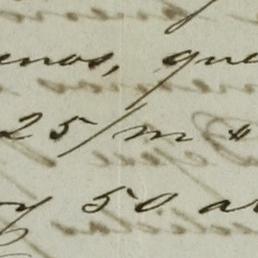 enos, que
25/m "
y 50 a